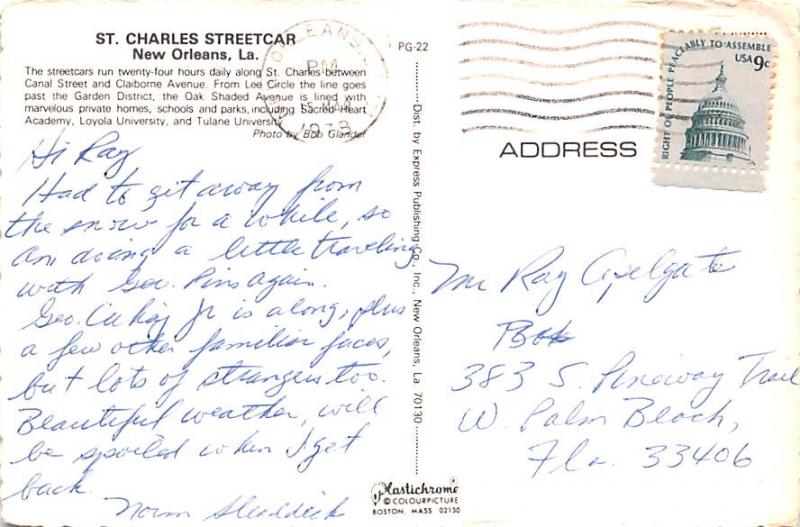 ST. CHARLES STREETCAR
New Orleans, La.
The streetcars run twenty-four hours daily along St. Charles between
Canal Street and Claiborne Avenue. From Lee Circle the line goes
past the Garden District, the Oak Shaded Avenue is lined with
marvelous private homes, schools and parks, including Sacred Heart
Academy, Loyola University, and Tulane University.
Photo by Bob Glander
Hi Ray
Had to get away from
the snow for a while, so
am doing a little traveling
with Geo. Pins again.
Geo. Jr is along, plus
a few other familiar faces,
but lots of strangers too.
Beautiful weather, will
be spoiled when I get
back.
Norm
PG-22
Dist. by Express Publishing Co., Inc., New Orleans, La 70130
ORLEANS
PM
MAR
RIGHT OF PEOPLE PEACEABLY TO ASSEMBLE
USA 9c
ADDRESS
Mr Ray Apelgate
383 S. Pineway Trail
W. Palm Beach,
Fla. 33406
Plastichrome
© COLOURPICTURE
BOSTON, MASS 02130